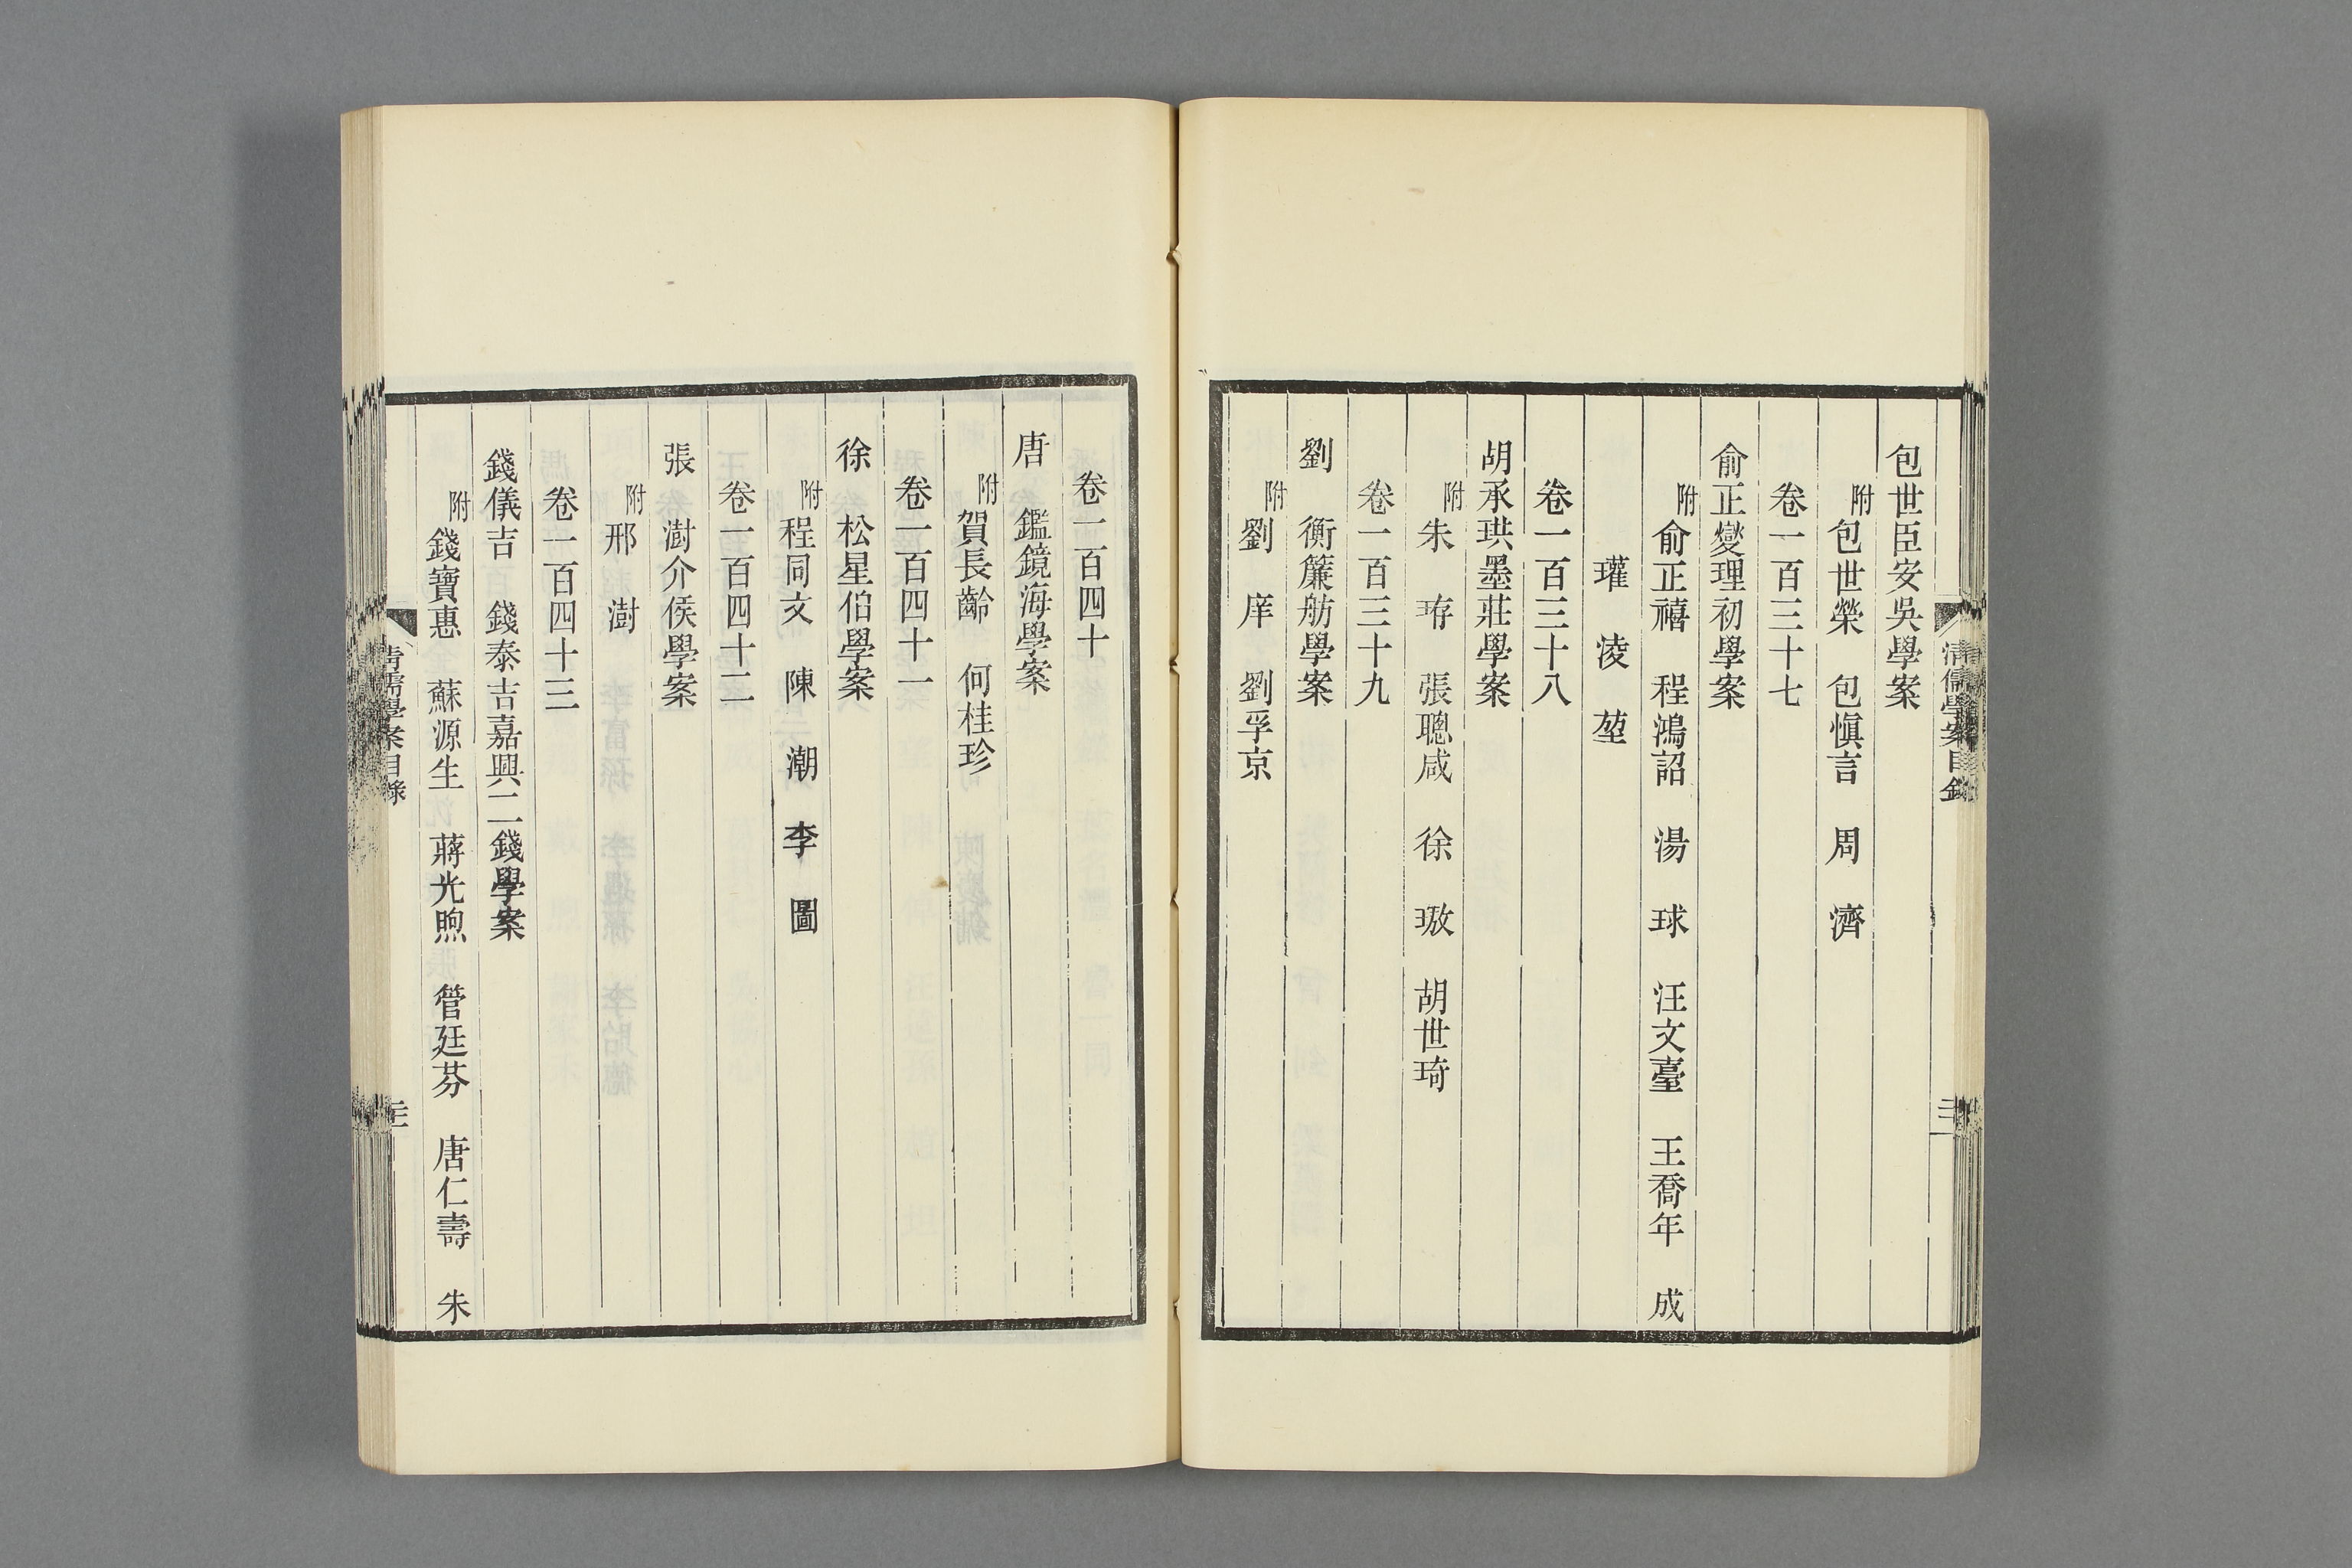 包世臣安吳學案
附包世榮 包愼言 周 濟
卷一百三十七
俞正燮理初學案
附俞正禧 程鴻詔 湯 球 汪文臺 王喬年 成
瓘 淩 堃
卷一百三十八
胡承珙墨莊學案
附朱 珔 張聰咸 徐 璈 胡世琦
卷一百三十九
劉 衡簾舫學案
附劉 庠 劉孚京
卷一百四十
唐 鑑鏡海學案
附賀長齡 何桂珍
卷一百四十一
徐 松星伯學案
附程同文 陳 潮 李 圖
卷一百四十二
張 澍介侯學案
附邢 澍
卷一百四十三
錢儀吉 錢泰吉嘉興二錢學案
附錢寶惠 蘇源生 蔣光煦 管廷芬 唐仁壽 朱
清儒學案目錄
清儒學案目錄